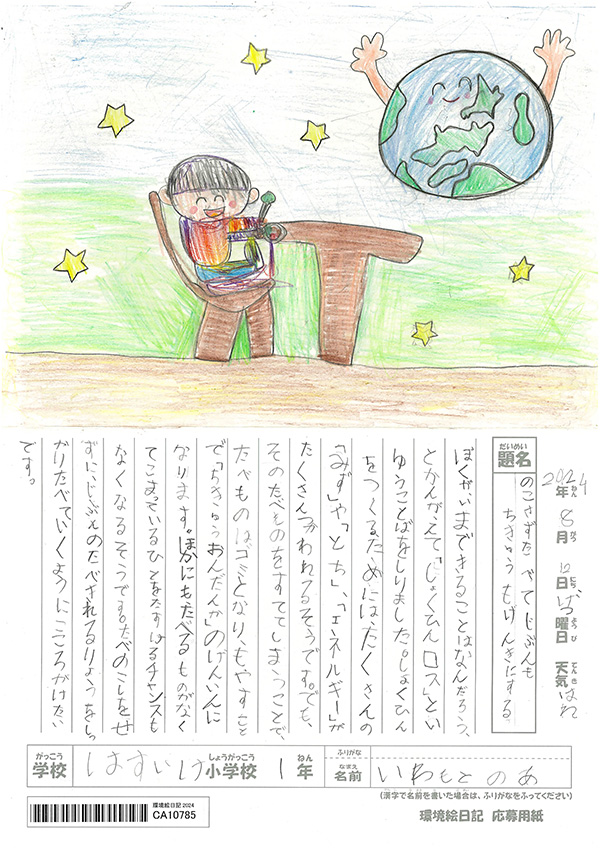 2024年 8月 12日 げつ曜日 天気 はれ
ねん がつ にち ようび てんき
だいめい
題名
のこさずたべてじぶんも
ちきゅうもげんきにする
ぼくが、いまできることはなんだろう、
とかんがえて「しょくひんロス」とい
ゆうことばをしりました。しょくひん
をつくるためには、たくさんの
「みず」や「とち」、「エネルギー」が
たくさんつかわれるそうです。でも、
そのたべものをすててしまうことで、
たべものはゴミとなり、もやすこと
で「ちきゅうおんだんか」のげんいんに
なります。ほかにもたべるものがなく
てこまっているひとをたすけるチャンスも
なくなるそうです。たべのこしをせ
ずに、じぶんのたべきれるりょうをしっ
かりたべていくようにこころがけたい
です。
がっこう しょうがっこう ねん
学校 はすいけ 小学校 1年
ふりがな
なまえ
名前 いわもと のあ
(漢字で名前を書いた場合は、ふりがなをふってください)
環境絵日記 2024
CA10785
環境絵日記 応募用紙